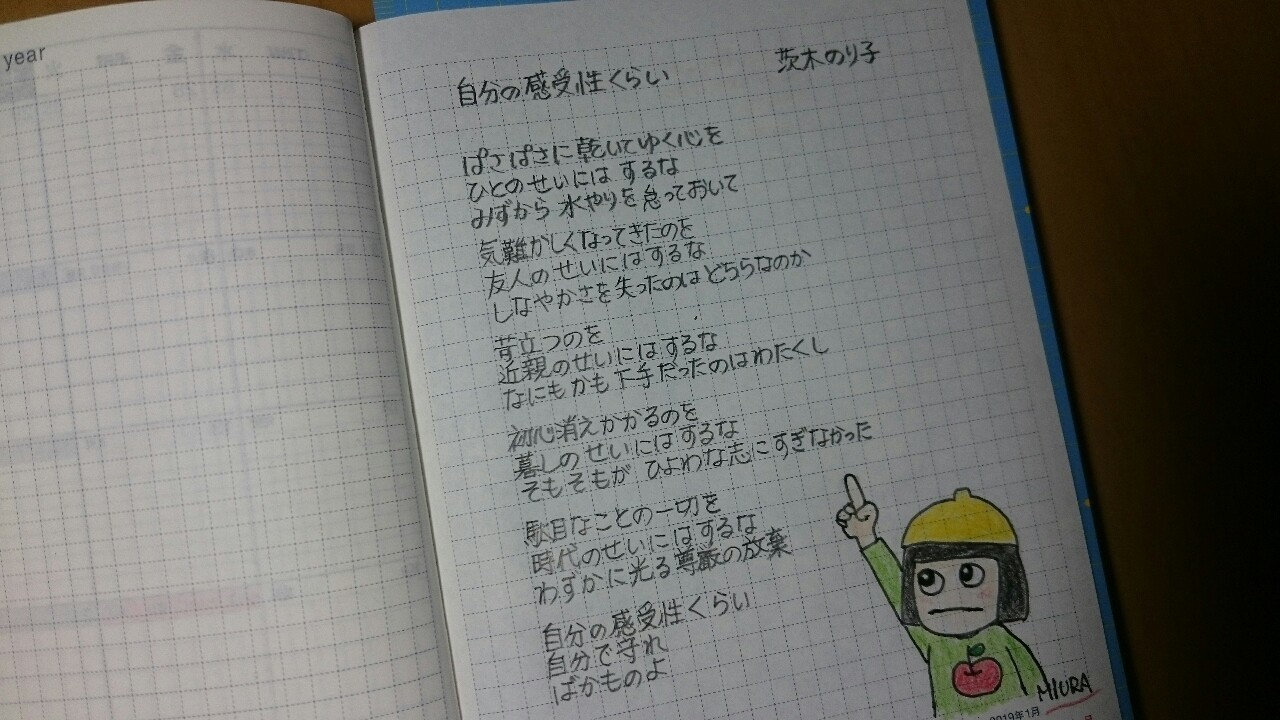 year
自分の感受性くらい
茨木のり子
ぱさぱさに乾いてゆく心を
ひとのせいにはするな
みずから水やりを怠っておいて
気難かしくなってきたのを
友人のせいにはするな
しなやかさを失ったのはどちらなのか
苛立つのを
近親のせいにはするな
なにもかも下手だったのはわたくし
初心消えかかるのを
暮しのせいにはするな
そもそもが ひよわな志にすぎなかった
駄目なことの一切を
時代のせいにはするな
わずかに光る尊厳の放棄
自分の感受性くらい
自分で守れ
ばかものよ
MIURA
2019年1月